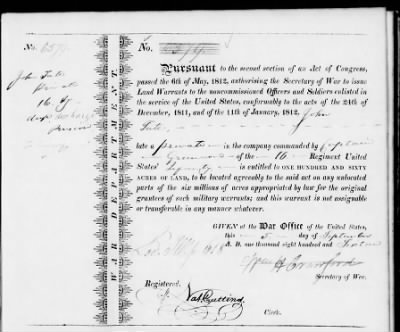 No. 6579
No. 6579
Pursuant to the second section of an Act of Congress,
passed the 6th of May, 1812, authorising the Secretary of War to issue
Land Warrants to the noncommissioned Officers and Soldiers enlisted
in the service of the United States, conformably to the acts of the 24th of
December, 1811, and of the 11th of January, 1812, John
late a private in the company commanded by Captain
of the 16 Regiment United
States' Infantry is entitled to ONE HUNDRED AND SIXTY
ACRES OF LAND, to be located agreeably to the said act on any unlocated
parts of the six millions of acres appropriated by law for the original
grantees of such military warrants; and this warrant is not assignable
or transferable in any manner whatever.
GIVEN at the War Office of the United States,
this day of September
A. D. one thousand eight hundred and sixteen
Wm H Crawford
Secretary of War.
Registered,
Nat Cutting
Clerk.
John
Private
16. Reg
discharge
WAR DEPARTMENT